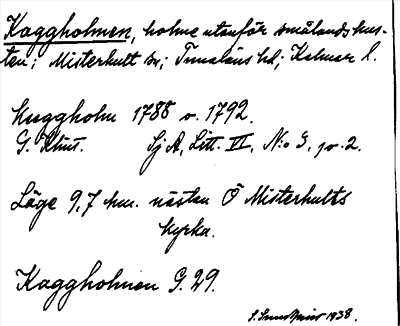 Kaggholmen, holme utanför smålandskus-
ten; Misterhult sn; Tunaläns hd; Kalmar l.
Kuggholm 1788 o. 1792.
G. Klint. SjA, Litt. II, N:o 3, p. 2.
Läge 9,7 km. nästan Ö Misterhults
kyrka.
Kaggholmen G. 29.
1938.